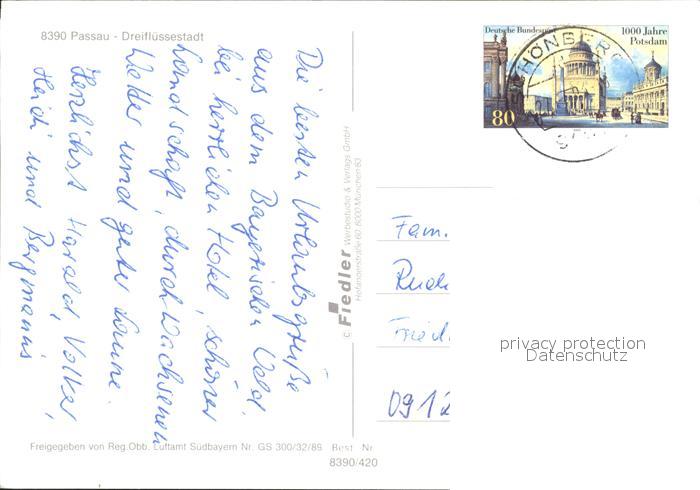 8390 Passau - Dreiflüssestadt
Die besten Urlaubsgrüße
aus dem Bayerischen Wald.
bei herrlichen Hotel, schöner
Landschaft, durchwachsenen
Wetter und guter Laune.
Herzlichst Harald, Volker,
Heidi und Bergmanns
© Fiedler Werbestudio & Verlags GmbH
Hofangerstraße 60 8000 München 83
Deutsche Bundespost
1000 Jahre
Potsdam
80
SCHÖNBERG
Fam.
0912
privacy protection
Datenschutz
Freigegeben von Reg.Obb. Luftamt Südbayern Nr. GS 300/32/89 Best. Nr.
8390/420